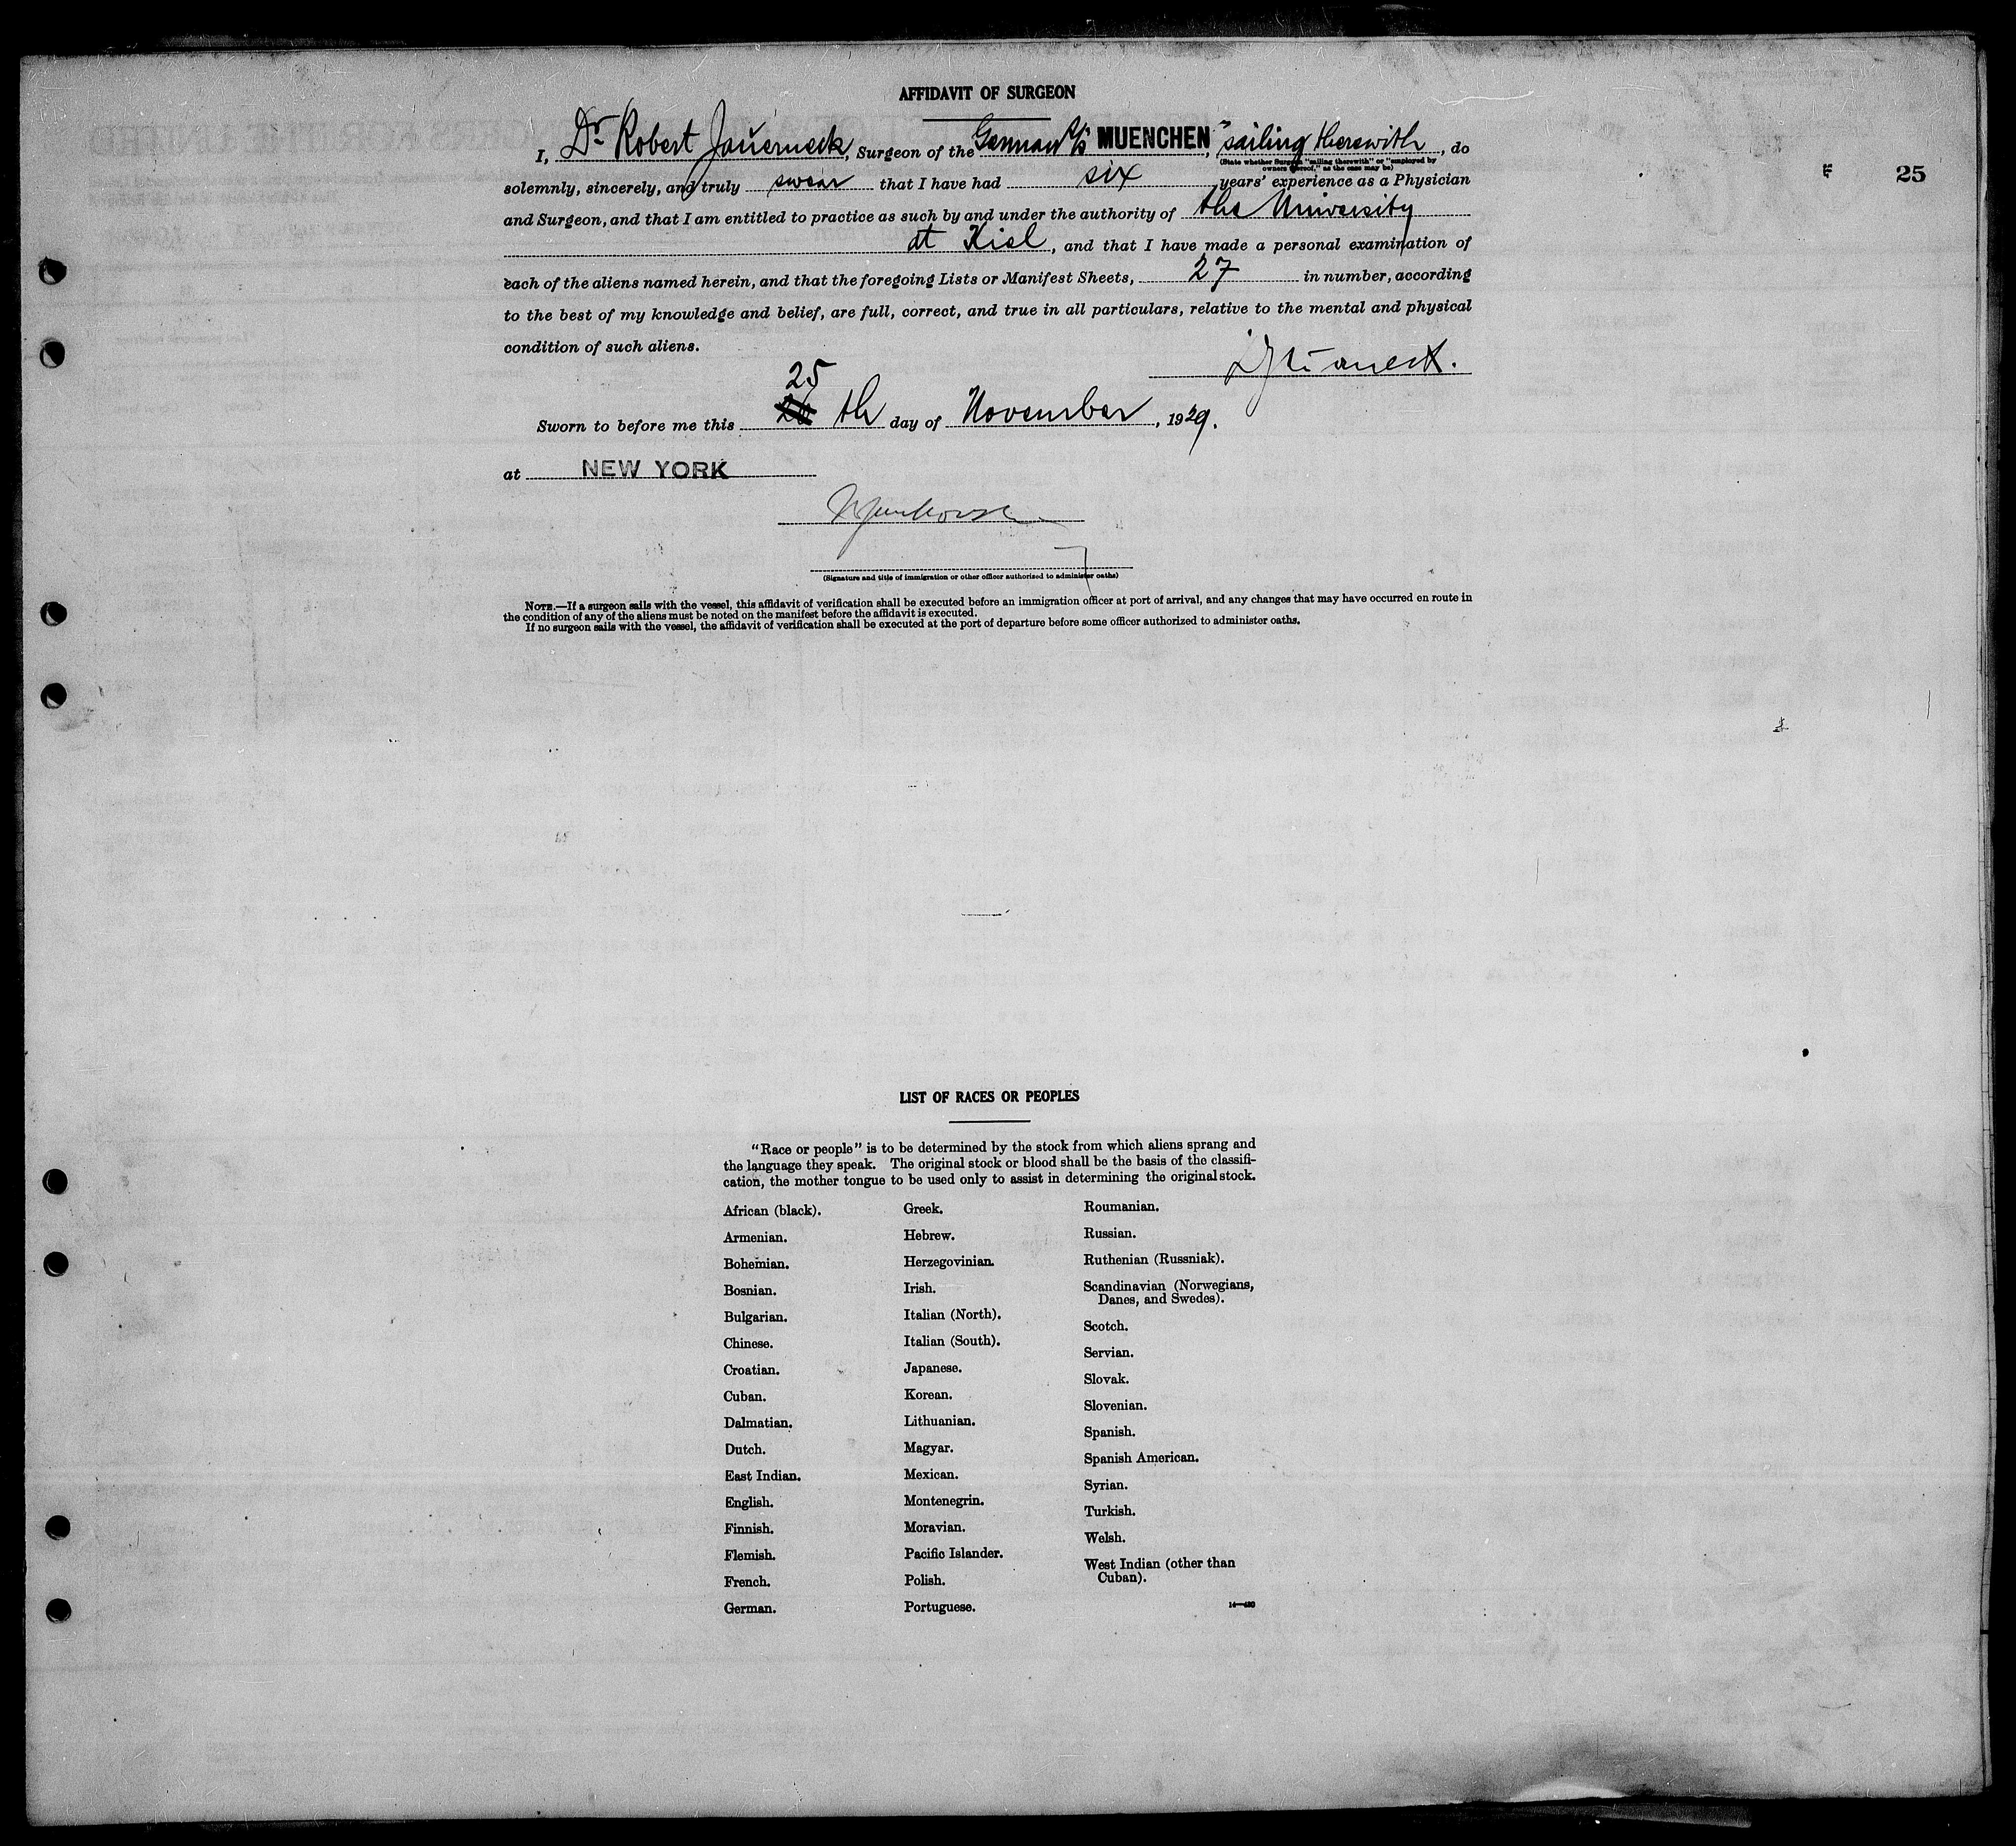 AFFIDAVIT OF SURGEON
I, Dr Robert Jauerneck, Surgeon of the German S/S MUENCHEN, "sailing therewith, do
(State whether Surgeon "sailing therewith" or "employed by
owners thereof," as the case may be)
solemnly, sincerely, and truly swear that I have had six years' experience as a Physician
and Surgeon, and that I am entitled to practice as such by and under the authority of the University
at Kiel, and that I have made a personal examination of
each of the aliens named herein, and that the foregoing Lists or Manifest Sheets, 27 in number, according
to the best of my knowledge and belief, are full, correct, and true in all particulars, relative to the mental and physical
condition of such aliens.
25
Sworn to before me this th day of November, 1929.
at NEW YORK
(Signature and title of immigration or other officer authorized to administer oaths)
NOTE.—If a surgeon sails with the vessel, this affidavit of verification shall be executed before an immigration officer at port of arrival, and any changes that may have occurred en route in
the condition of any of the aliens must be noted on the manifest before the affidavit is executed.
If no surgeon sails with the vessel, the affidavit of verification shall be executed at the port of departure before some officer authorized to administer oaths.
25
LIST OF RACES OR PEOPLES
"Race or people" is to be determined by the stock from which aliens sprang and
the language they speak. The original stock or blood shall be the basis of the classifi-
cation, the mother tongue to be used only to assist in determining the original stock.
African (black).
Armenian.
Bohemian.
Bosnian.
Bulgarian.
Chinese.
Croatian.
Cuban.
Dalmatian.
Dutch.
East Indian.
English.
Finnish.
Flemish.
French.
German.
Greek.
Hebrew.
Herzegovinian.
Irish.
Italian (North).
Italian (South).
Japanese.
Korean.
Lithuanian.
Magyar.
Mexican.
Montenegrin.
Moravian.
Pacific Islander.
Polish.
Portuguese.
Roumanian.
Russian.
Ruthenian (Russniak).
Scandinavian (Norwegians,
Danes, and Swedes).
Scotch.
Servian.
Slovak.
Slovenian.
Spanish.
Spanish American.
Syrian.
Turkish.
Welsh.
West Indian (other than
Cuban).